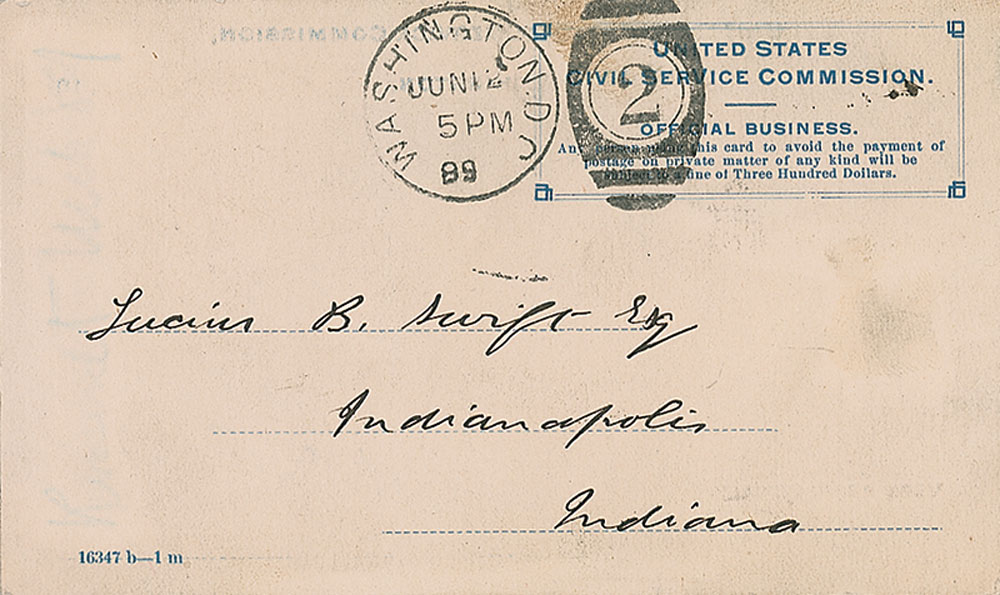 WASHINGTON. D.C.
JUN 12
5 PM
89
2
UNITED STATES
CIVIL SERVICE COMMISSION.
OFFICIAL BUSINESS.
Any person using this card to avoid the payment of
postage on private matter of any kind will be
subject to a fine of Three Hundred Dollars.
Lucius B. Swift Esq
Indianapolis
Indiana
16347 b—1 m